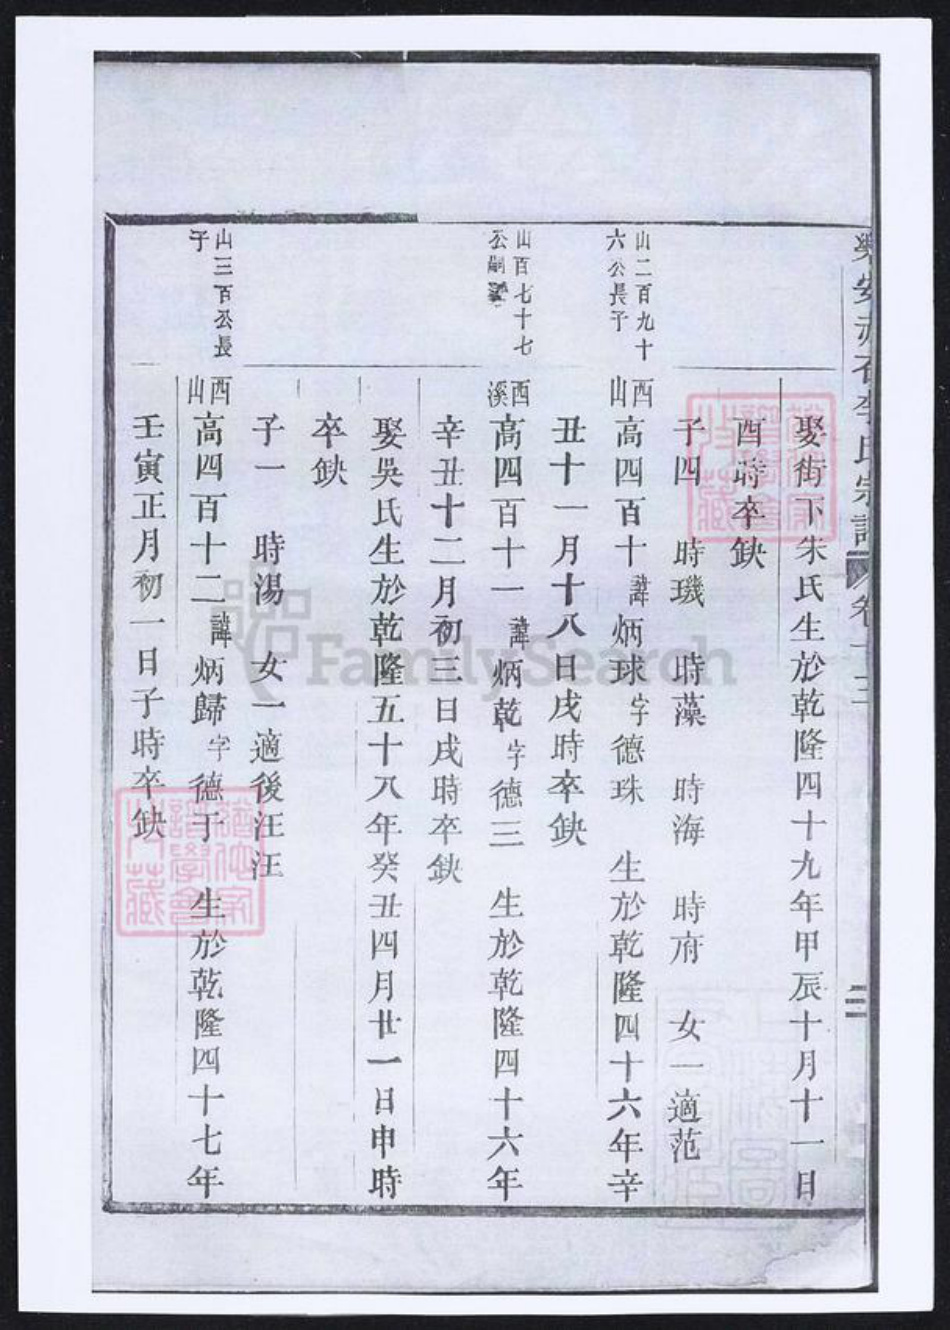 樂安赤石李氏宗譜 卷十三
娶街下朱氏生於乾隆四十九年甲辰十月十一日
酉時卒缺
子四 時璣 時藻 時海 時府 女一適范
山二百九十
六公長子
西山高四百十諱炳球字德珠 生於乾隆四十六年辛
丑十一月十八日戌時卒缺
山百七十七
公嗣
西溪高四百十一諱炳乾字德三 生於乾隆四十六年
辛丑十二月初三日戌時卒缺
娶吳氏生於乾隆五十八年癸丑四月廿一日申時
卒缺
子一 時湯 女一適後汪汪
山三百公長
子
西山高四百十二諱炳歸字德于 生於乾隆四十七年
壬寅正月初一日子時卒缺
FamilySearch